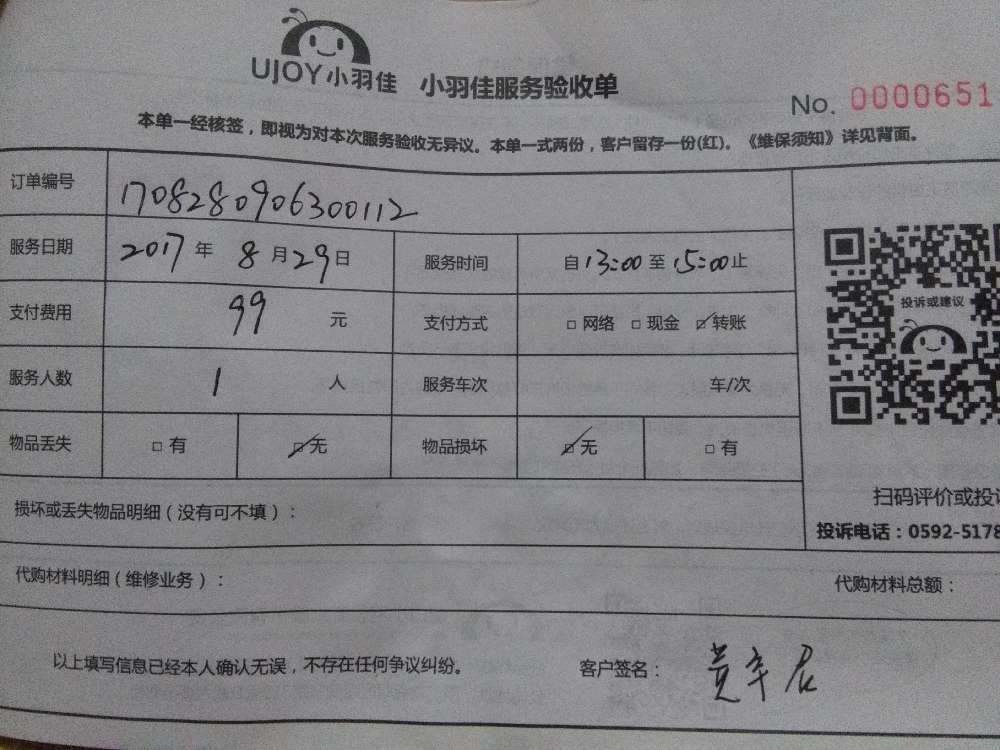 UJOY小羽佳 小羽佳服务验收单
No. 0000651
本单一经核签，即视为对本次服务验收无异议。本单一式两份，客户留存一份(红)。《维保须知》详见背面。
订单编号 1708280906300112
服务日期 2017 年 8 月 29 日 服务时间 自 13:00 至 15:00 止
投诉或建议
支付费用 99 元 支付方式 □ 网络 □ 现金 ☑ 转账
服务人数 1 人 服务车次 车/次
物品丢失 □ 有 ☑ 无 物品损坏 ☑ 无 □ 有
扫码评价或投
损坏或丢失物品明细（没有可不填）：
投诉电话：0592-5178
代购材料明细（维修业务）： 代购材料总额：
以上填写信息已经本人确认无误，不存在任何争议纠纷。 客户签名：